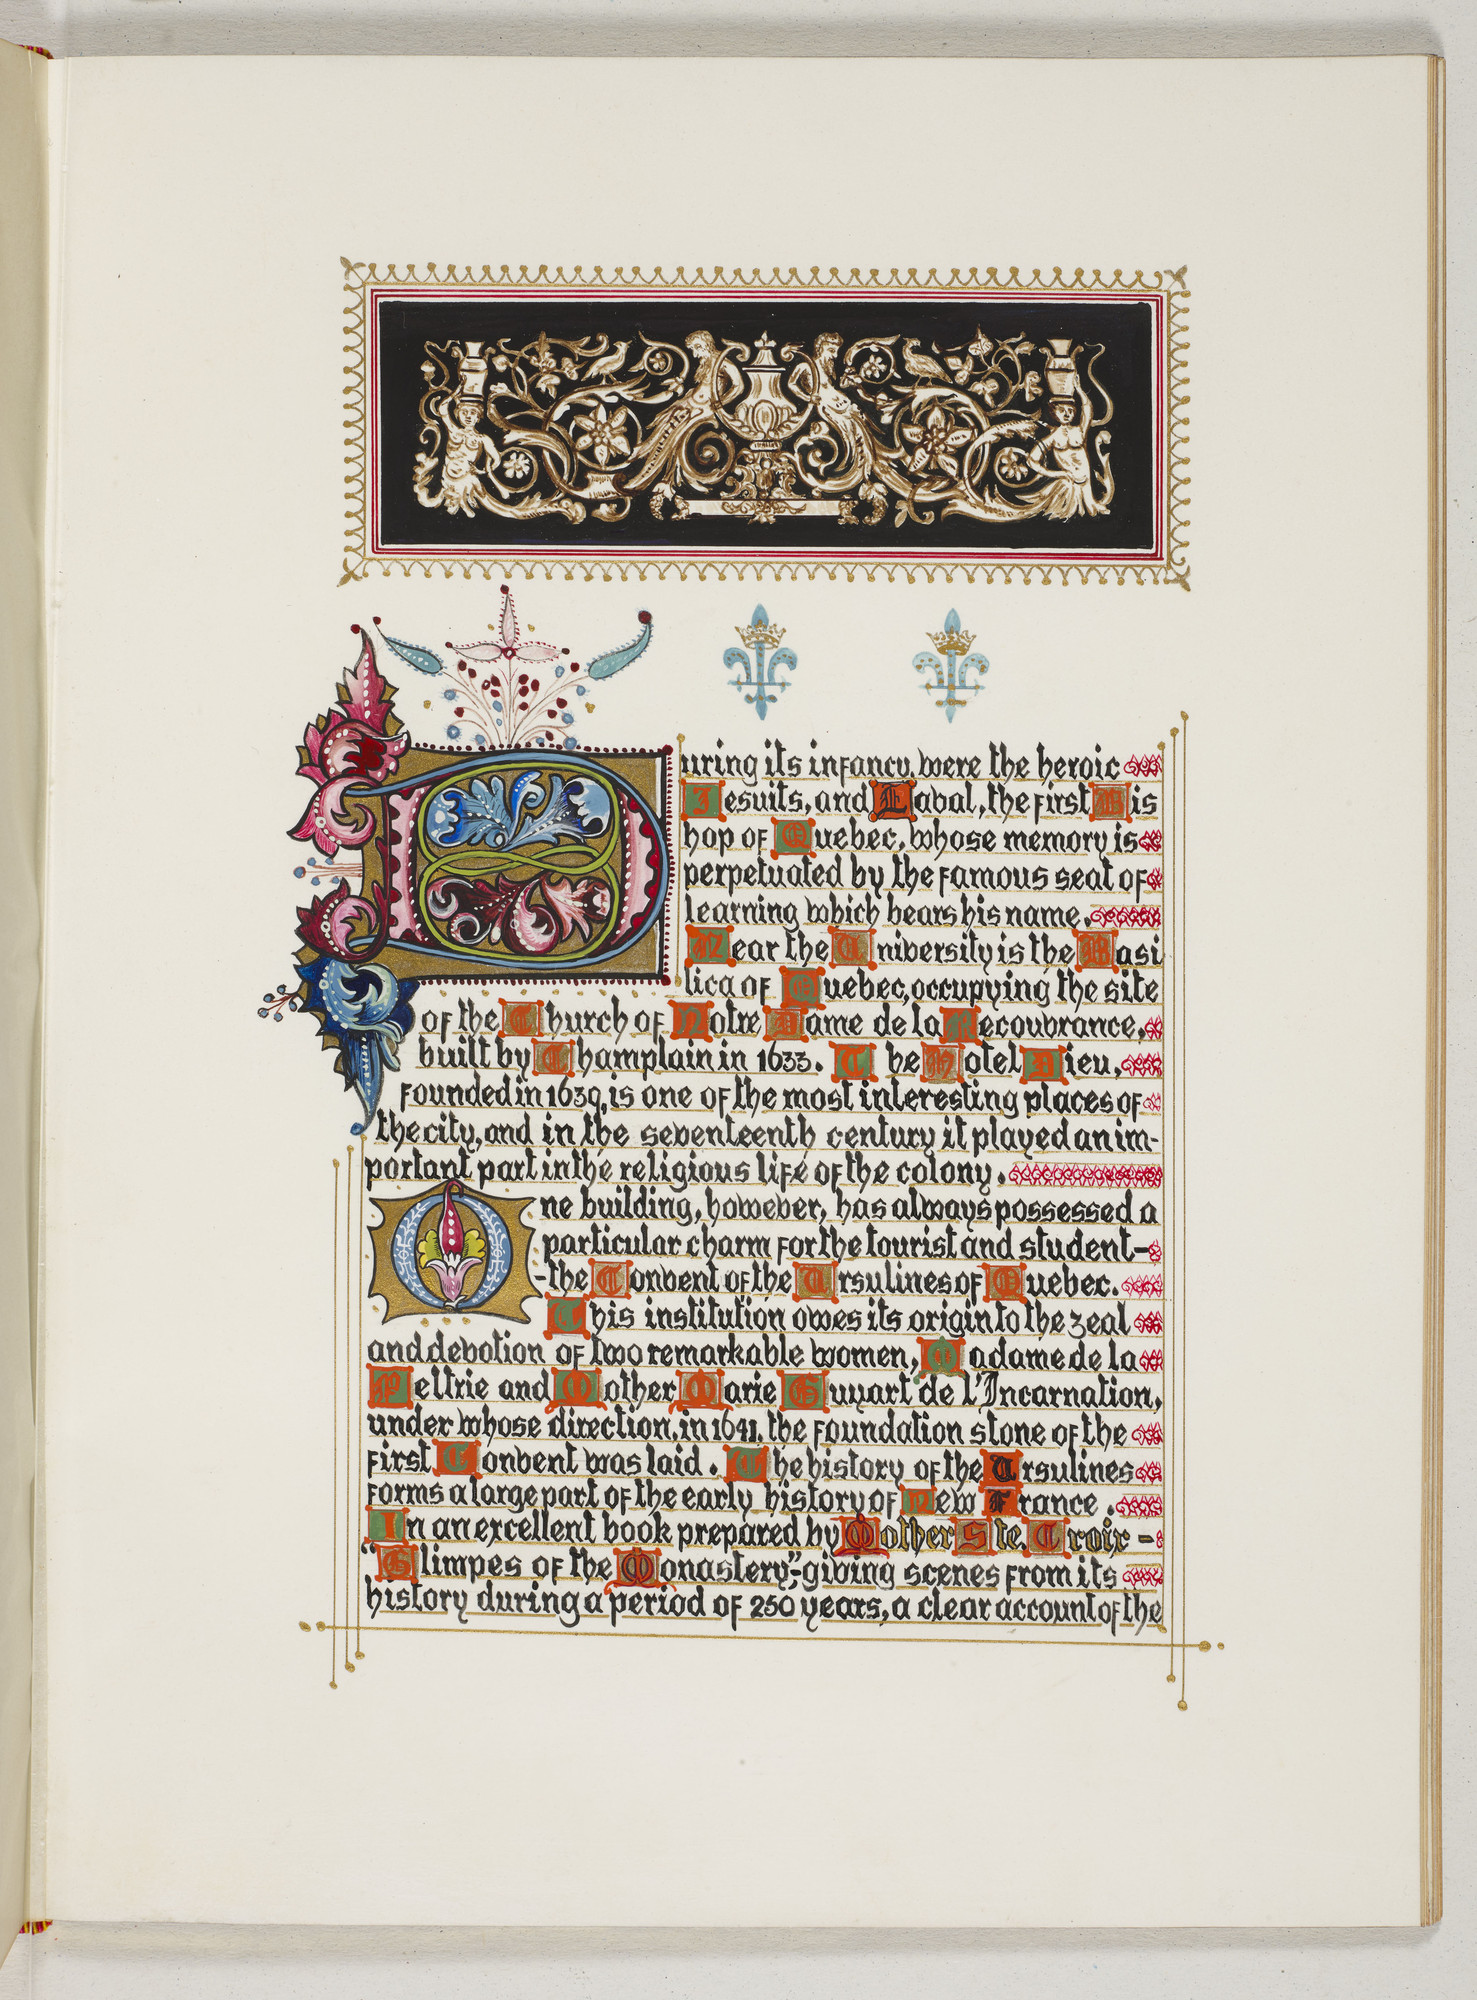 During its infancy, were the heroic
Jesuits, and Laval, the first Bis
hop of Quebec, whose memory is
perpetuated by the famous seat of
learning which bears his name.
Near the University is the Basi
lica of Quebec, occupying the site
of the Church of Notre Dame de la Recouvrance,
built by Champlain in 1633. The Hotel Dieu,
founded in 1639, is one of the most interesting places of
the city, and in the seventeenth century it played an im-
portant part in the religious life of the colony.
One building, however, has always possessed a
particular charm for the tourist and student-
-the Convent of the Ursulines of Quebec.
This institution owes its origin to the zeal
and devotion of two remarkable women, Madame de la
Peltrie and Mother Marie Guyart de l'Incarnation,
under whose direction, in 1641, the foundation stone of the
first Convent was laid. The history of the Ursulines
forms a large part of the early history of New France.
In an excellent book prepared by Mother Ste. Croix -
"Glimpes of the Monastery,"- giving scenes from its
history during a period of 250 years, a clear account of the